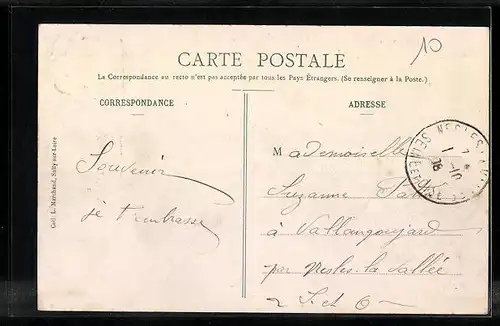 10
CARTE POSTALE
La Correspondance au recto n'est pas acceptée par tous les Pays Étrangers. (Se renseigner à la Poste.)
CORRESPONDANCE
ADRESSE
Coll. L. Marchand, Sully-sur-Loire
Souvenir
je t'embrasse
Mademoiselle
Suzanne
à Vallangoujard
par Nesles-la-Vallée
S. et O.
NESLES-LA
SEINE ET OISE
1 -10
08